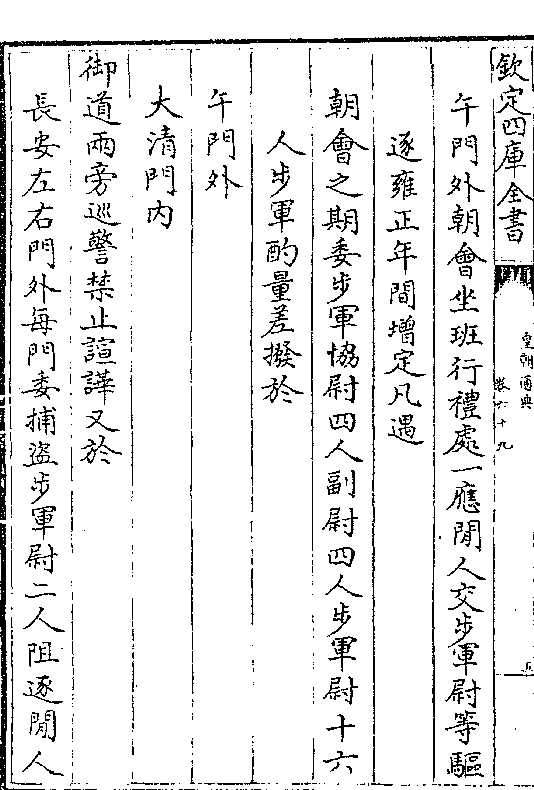 欽定四庫全書
皇朝通典
卷六十九
午門外朝會坐班行禮處一應閒人交步軍尉等驅
逐雍正年間增定凡遇
朝會之期委步軍協尉四人副尉四人步軍尉十六
人步軍酌量差撥於
午門外
大清門內
御道兩旁巡警禁止諠譁又於
長安左右門外每門委捕盜步軍尉二人阻逐閒人